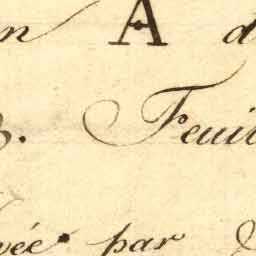 n A d
3. Feuil
vée par